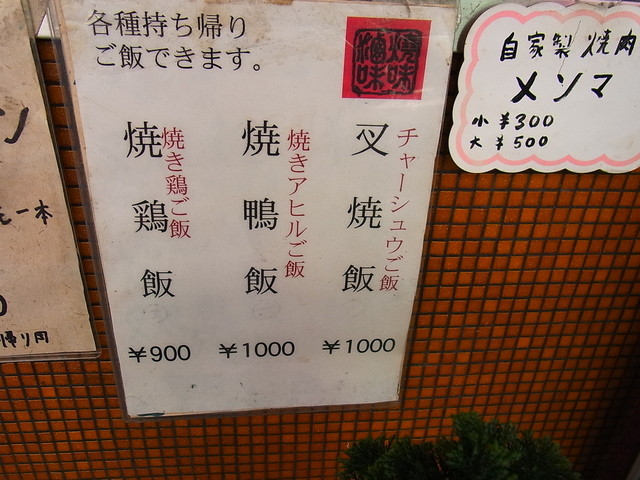 各種持ち帰り
ご飯できます。
燒味
滷味
叉焼飯
チャーシュウご飯
¥1000
焼鴨飯
焼きアヒルご飯
¥1000
焼鶏飯
焼き鶏ご飯
¥900
自家製焼肉
メンマ
小 ¥300
大 ¥500
一本
帰り用